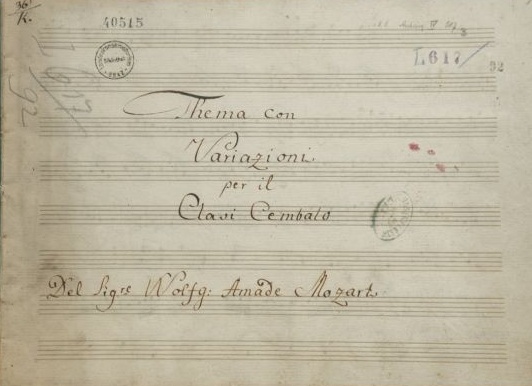 36
K.
40515
L617
92
L 617/
92
Thema con
Variazioni
per il
Clavi Cembalo
Del Sig:re Wolfg: Amade Mozart